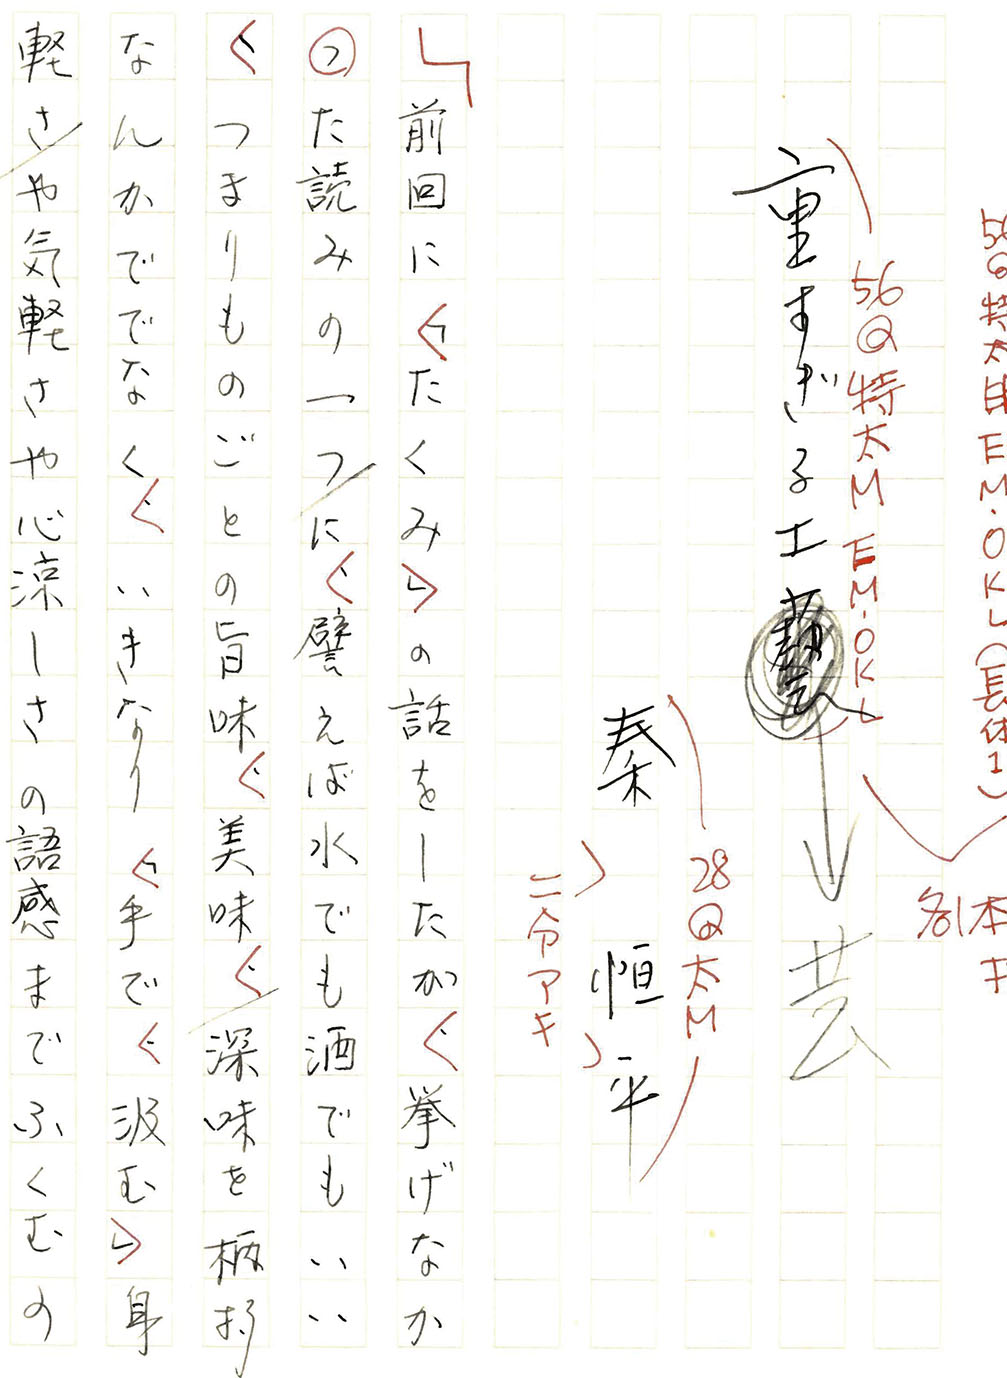 56Q特太目EM・OKL(長体1)
56Q特太M EM・OKL
重すぎる工藝
芸
28Q太M
秦 恒平
二分アキ
前回に「たくみ」の話をしたが、挙げなか
った読みの一つに、譬えば水でも酒でもいい
、つまりものごとの旨味、美味、深味を柄杓
なんかででなく、いきなり「手で、汲む」身
軽さや気軽さや心涼しさの語感までふくむの